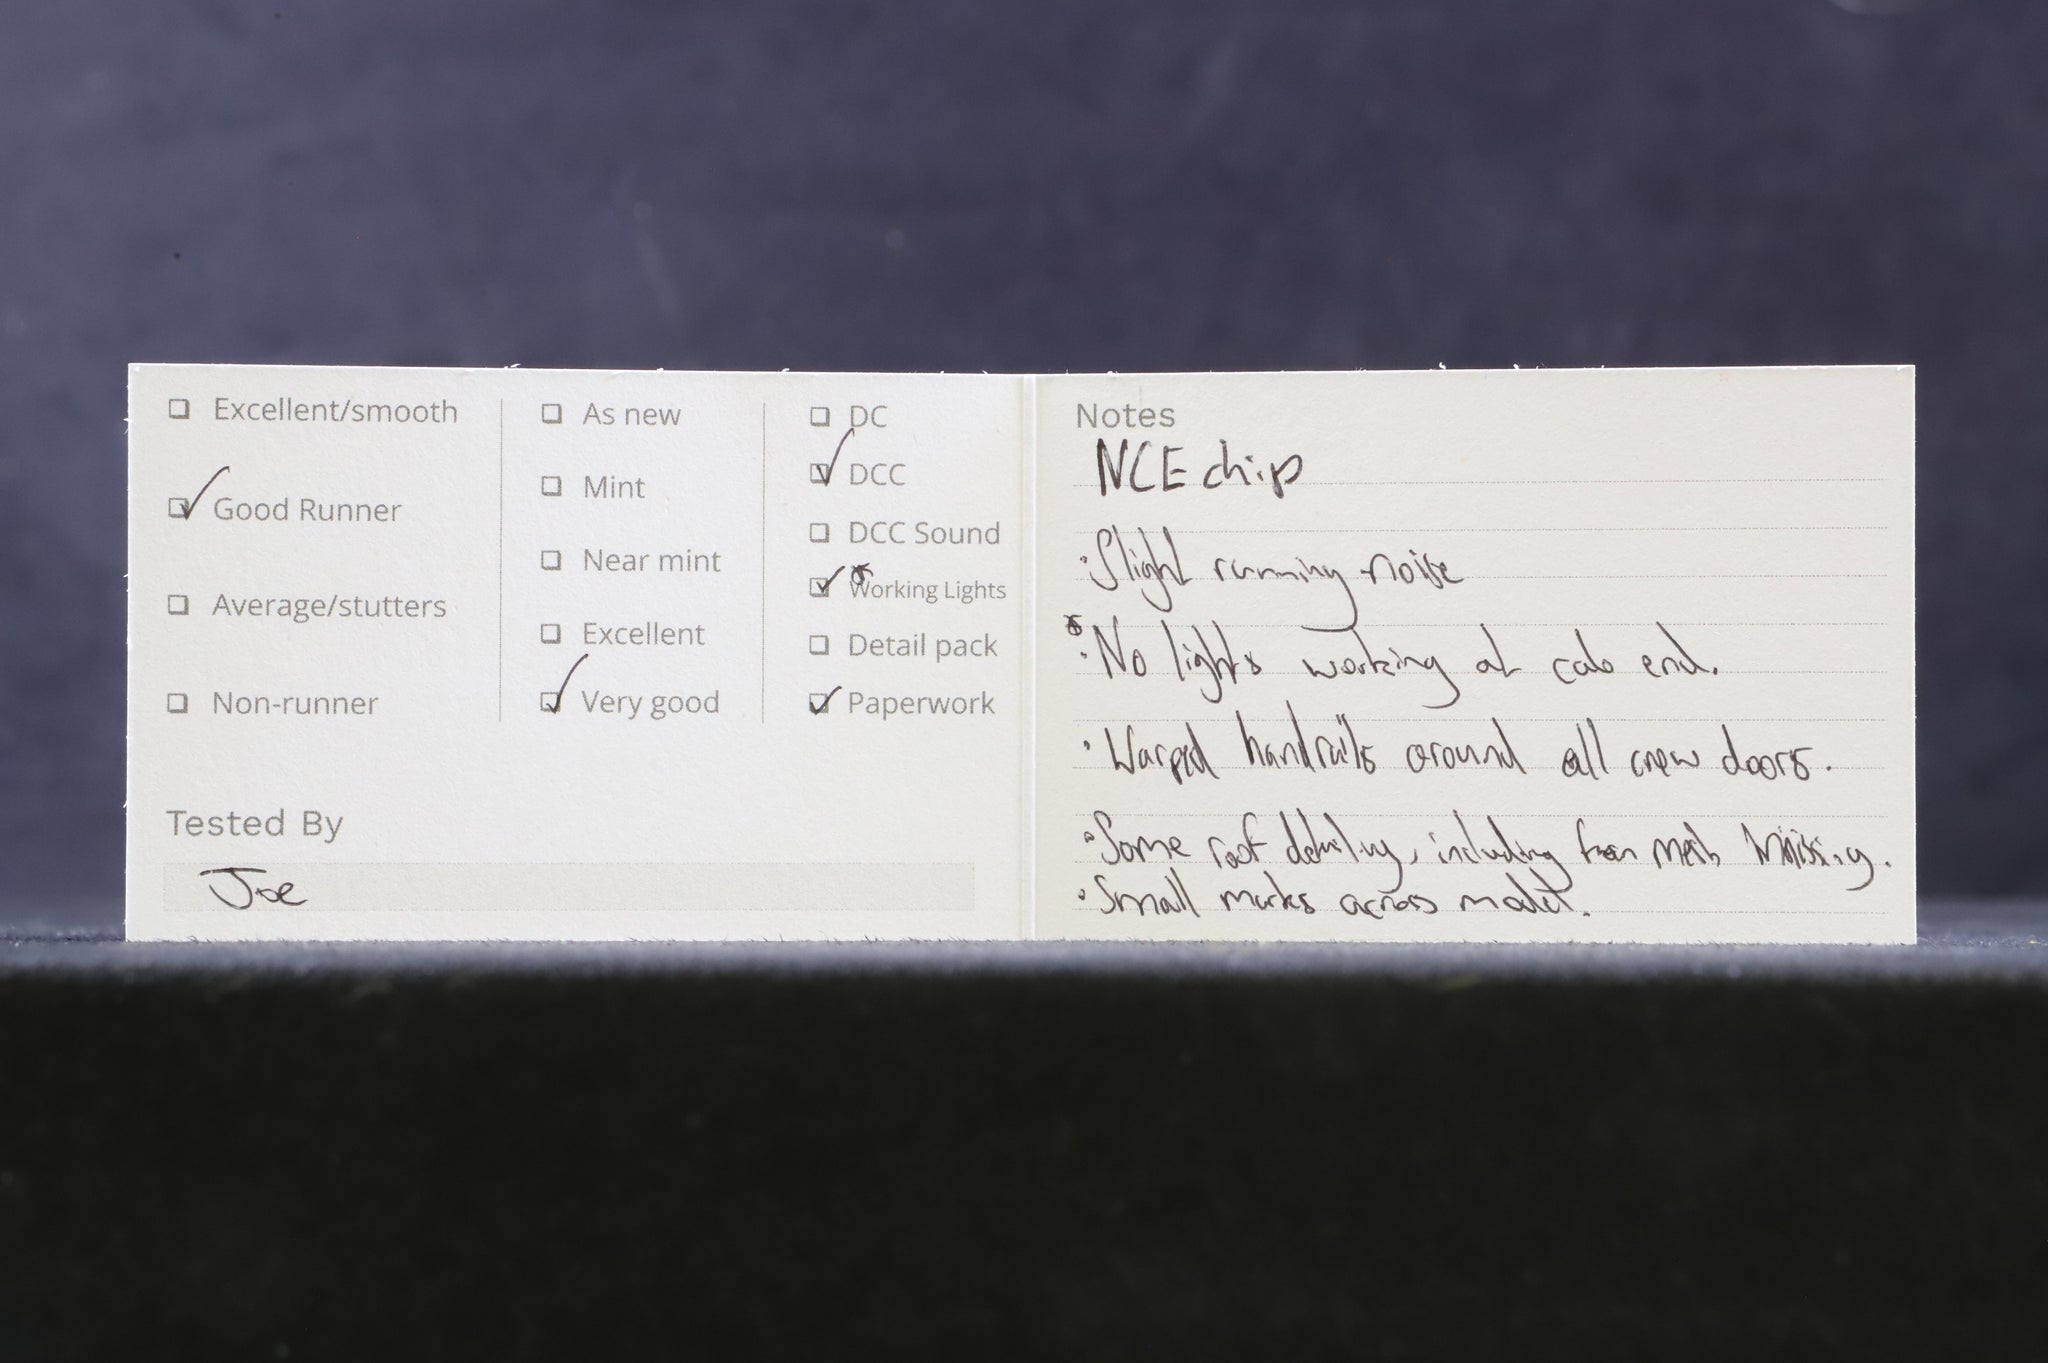 Excellent/smooth
Good Runner
Average/stutters
Non-runner
As new
Mint
Near mint
Excellent
Very good
DC
DCC
DCC Sound
* Working Lights
Detail pack
Paperwork
Tested By
Joe
Notes
NCE chip
· Slight running noise
* · No lights working at cab end.
· Warped handrails around all crew doors.
· Some roof detailing, including mesh missing.
· Small marks across model.